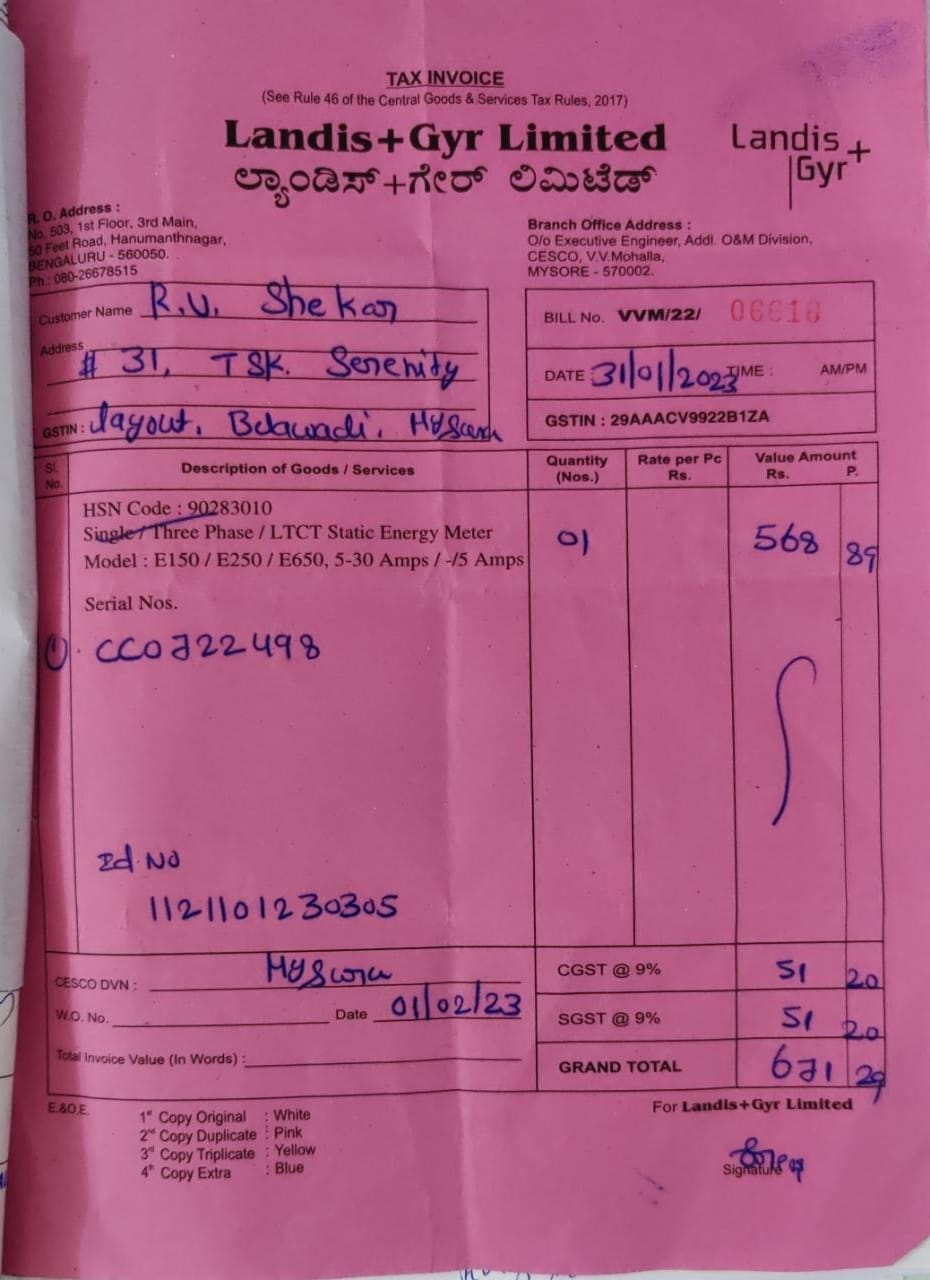 TAX INVOICE
(See Rule 46 of the Central Goods & Services Tax Rules, 2017)
Landis+Gyr Limited
ಲ್ಯಾಂಡಿಸ್+ಗೇರ್ ಲಿಮಿಟೆಡ್
Landis
Gyr+
R. O. Address :
No. 503, 1st Floor, 3rd Main,
50 Feet Road, Hanumanthnagar,
BENGALURU - 560050.
Ph.: 080-26678515
Branch Office Address :
O/o Executive Engineer, Addl. O&M Division,
CESCO, V.V.Mohalla,
MYSORE - 570002.
Customer Name R.V. Shekar
Address # 31, TSK. Serenity
GSTIN : layout, Belawadi, Mysore
BILL No. VVM/22/ 06616
DATE 31/01/2023 TIME : AM/PM
GSTIN : 29AAACV9922B1ZA
Sl. No. Description of Goods / Services Quantity (Nos.) Rate per Pc Rs. Value Amount Rs. P.
HSN Code : 90283010
Single / Three Phase / LTCT Static Energy Meter 01 568 89
Model : E150 / E250 / E650, 5-30 Amps / -/5 Amps
Serial Nos.
1) CC0722498
Id No
1121101230305
CESCO DVN : Mysore
W.O. No. Date 01/02/23
Total Invoice Value (In Words) :
CGST @ 9% 51 20
SGST @ 9% 51 20
GRAND TOTAL 671 29
E.&O.E.
1st Copy Original : White
2nd Copy Duplicate : Pink
3rd Copy Triplicate : Yellow
4th Copy Extra : Blue
For Landis+Gyr Limited
Signature